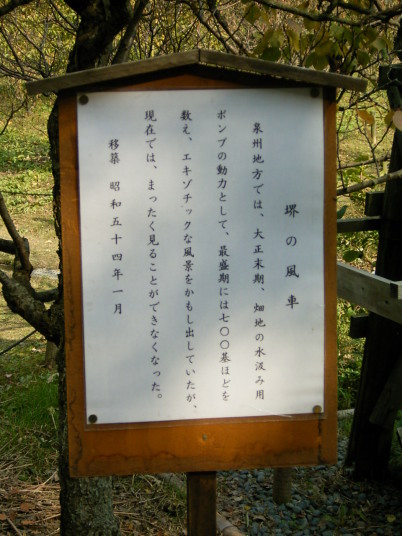 堺の風車
泉州地方では、大正末期、畑地の水汲み用
ポンプの動力として、最盛期には七〇〇基ほどを
数え、エキゾチックな風景をかもし出していたが、
現在では、まったく見ることができなくなった。
移築 昭和五十四年一月